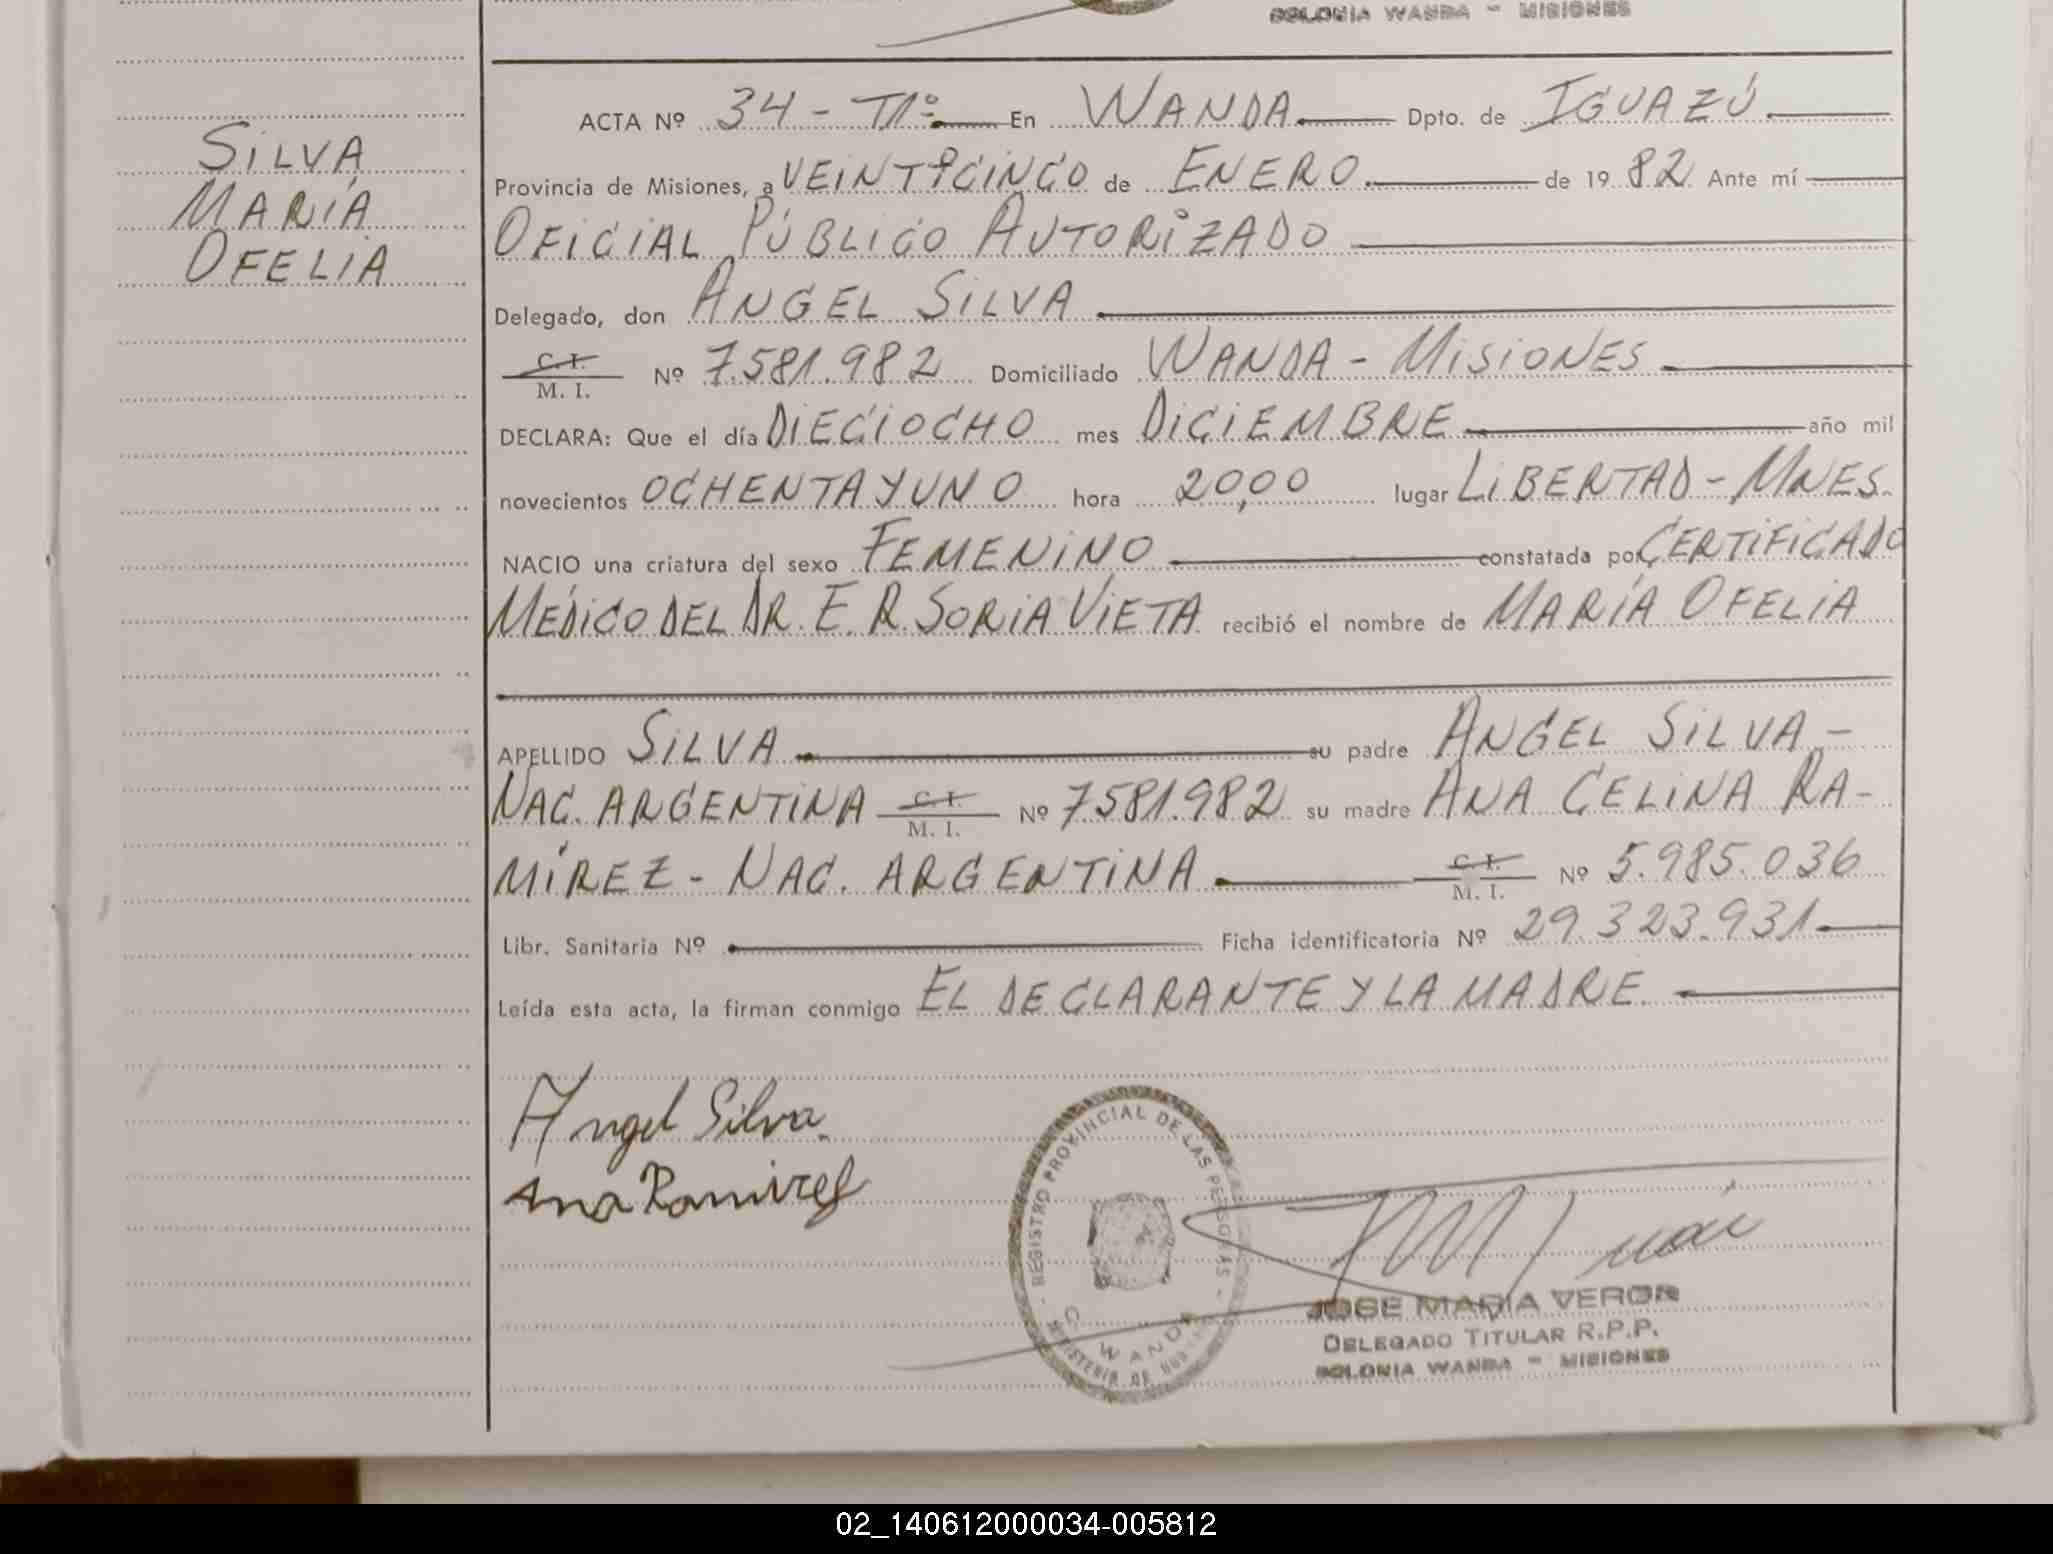 COLONIA WANDA - MISIONES
SILVA
MARÍA
OFELIA
ACTA Nº 34 - T1º En WANDA Dpto. de IGUAZÚ
Provincia de Misiones, a VEINTICINCO de ENERO de 1982 Ante mí
OFICIAL PÚBLICO AUTORIZADO
Delegado, don ANGEL SILVA
C. I.
M. I. Nº 7.581.982 Domiciliado WANDA - MISIONES
DECLARA: Que el día DIECIOCHO mes DICIEMBRE año mil
novecientos OCHENTA Y UNO hora 20,00 lugar LIBERTAD - MNES.
NACIO una criatura del sexo FEMENINO constatada por CERTIFICADO
MÉDICO DEL DR. E. R. SORIA VIETA recibió el nombre de MARÍA OFELIA
APELLIDO SILVA su padre ANGEL SILVA -
NAC. ARGENTINA C. I. M. I. Nº 7581.982 su madre ANA CELINA RA-
MÍREZ - NAC. ARGENTINA C. I. M. I. Nº 5.985.036
Libr. Sanitaria Nº Ficha identificatoria Nº 29.323.931
Leída esta acta, la firman conmigo EL DECLARANTE Y LA MADRE
Angel Silva
Ana Ramirez
REGISTRO PROVINCIAL DE LAS PERSONAS
C. WANDA
JOSE MARIA VERON
DELEGADO TITULAR R.P.P.
COLONIA WANDA - MISIONES
02_140612000034-005812